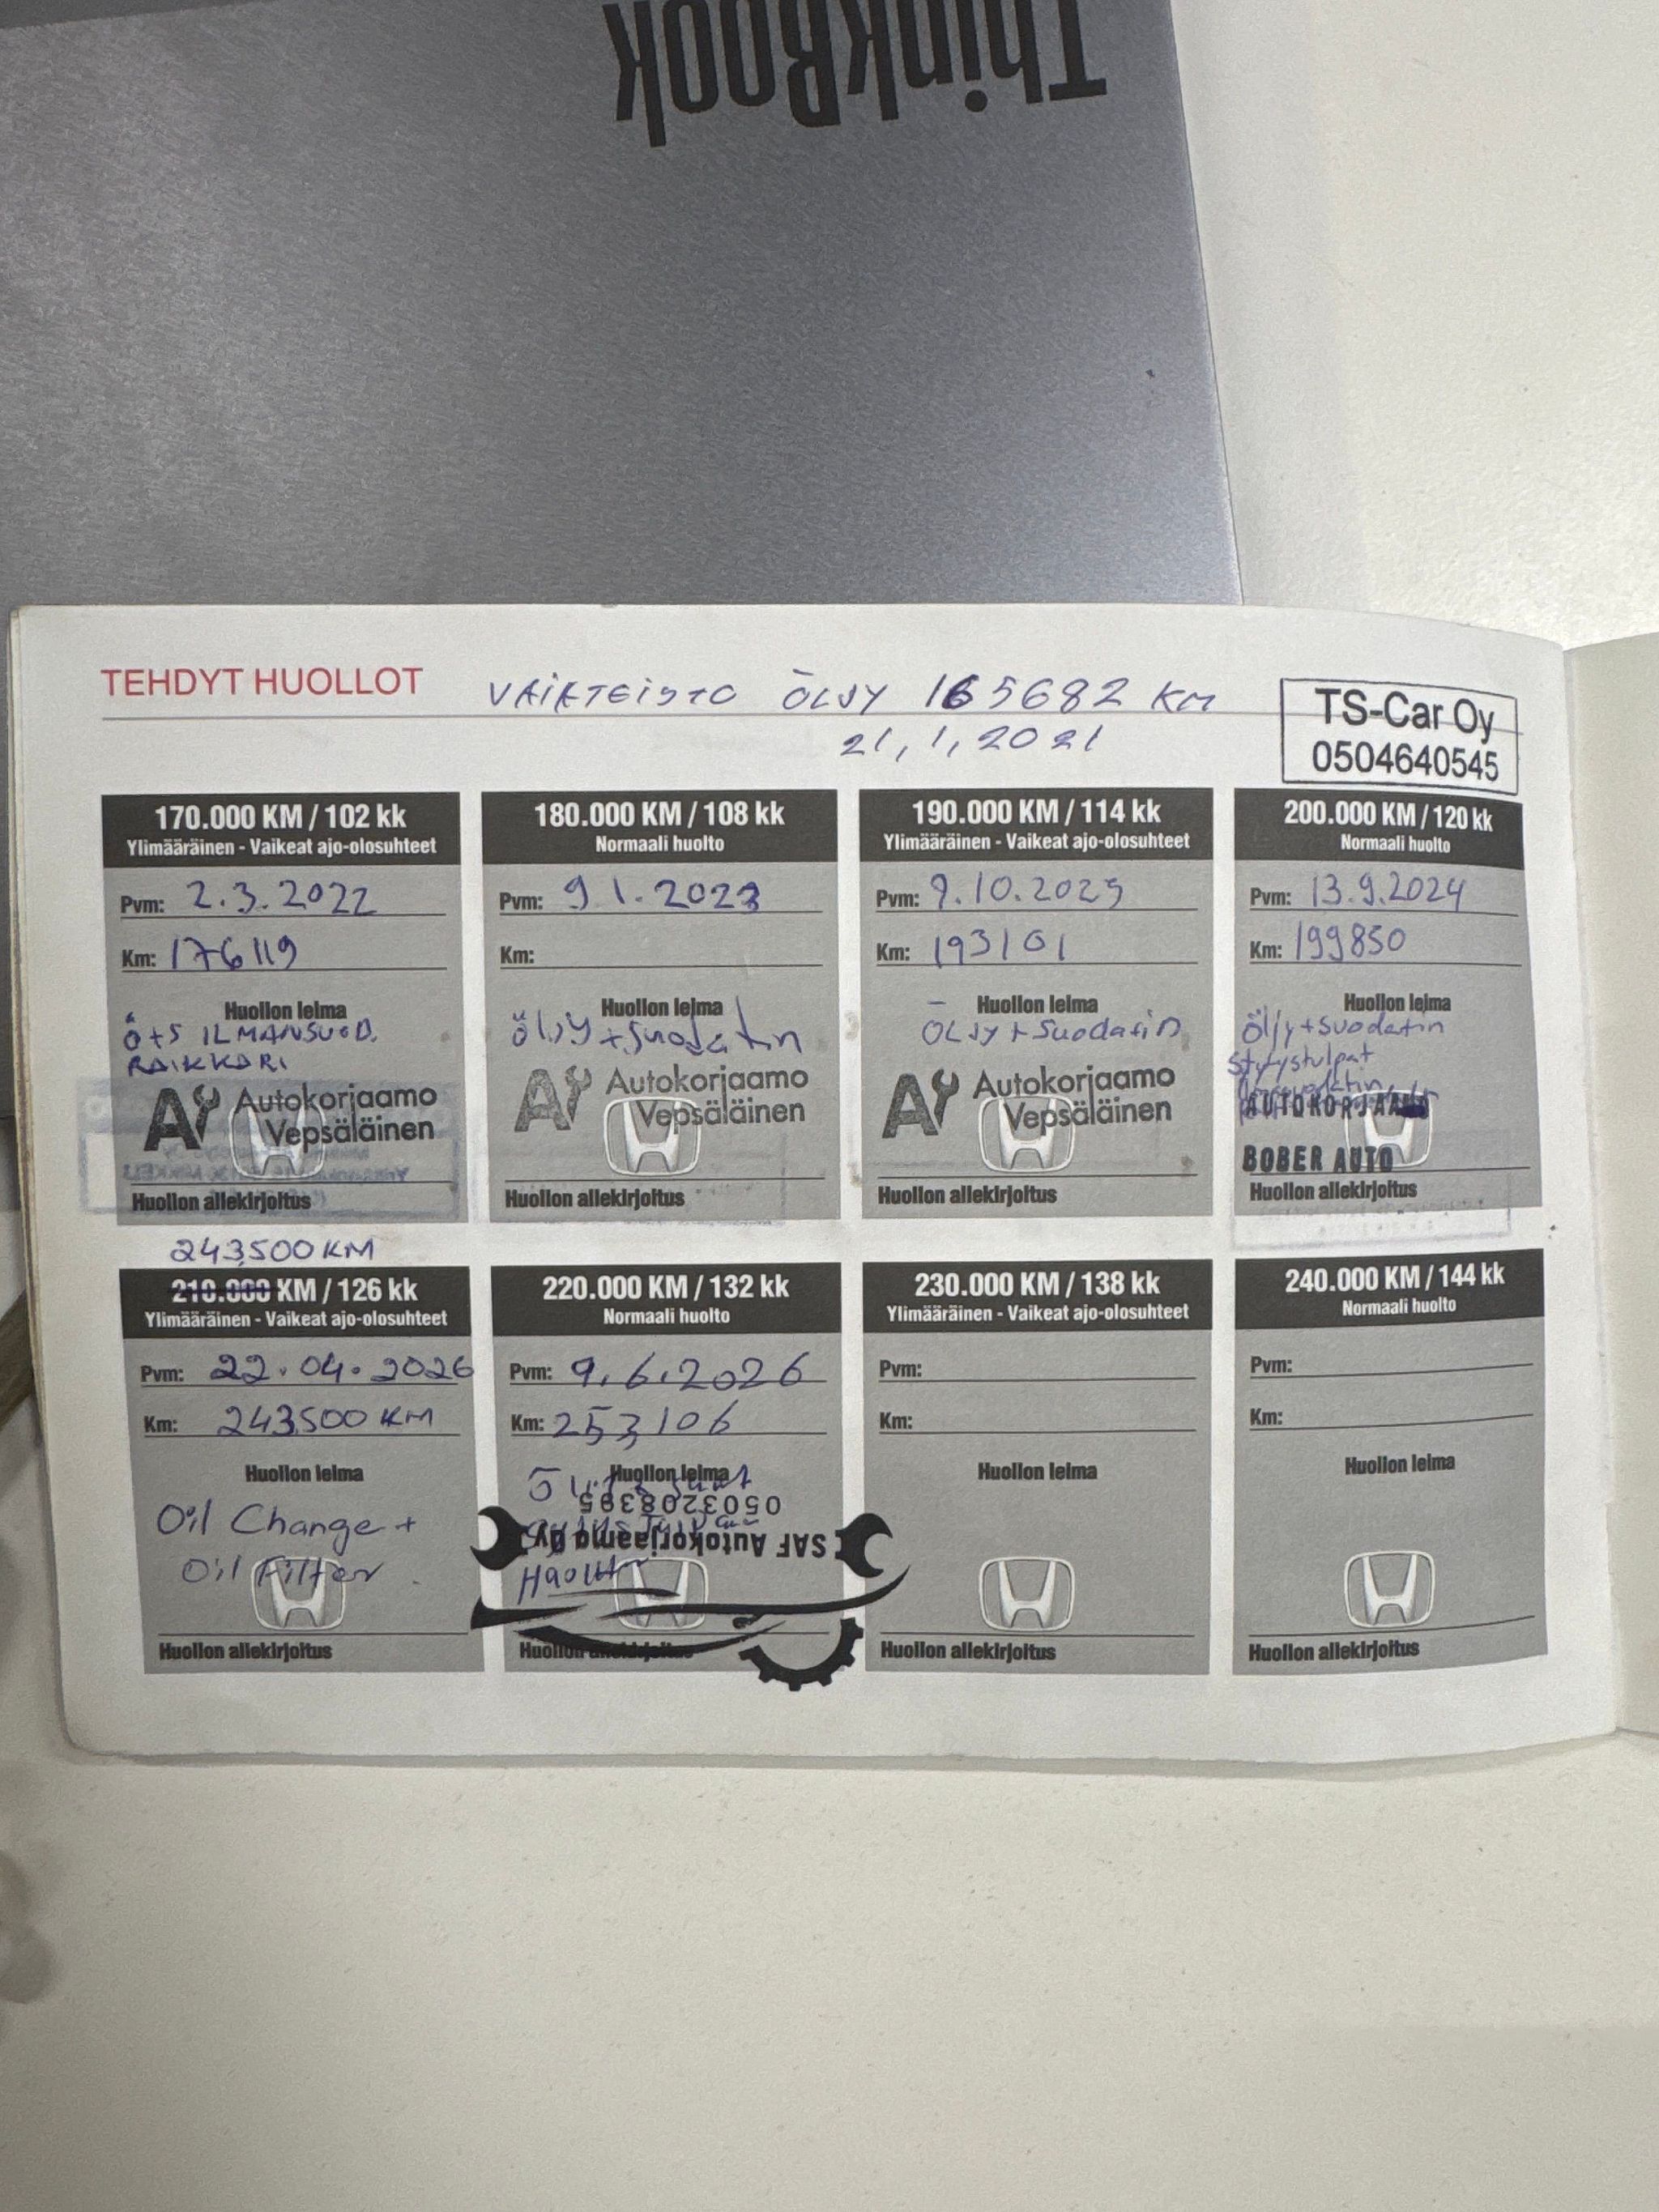 ThinkBook
TEHDYT HUOLLOT
VAIHTEISTO ÖLJY 165682 KM
21.1.2021
TS-Car Oy
0504640545
170.000 KM / 102 kk
Ylimääräinen - Vaikeat ajo-olosuhteet
Pvm: 2.3.2022
Km: 176119
Huollon leima
Ö+S ILMANSUOD.
RAIKKARI
Autokorjaamo
Vepsäläinen
Huollon allekirjoitus
180.000 KM / 108 kk
Normaali huolto
Pvm: 9 1.2023
Km:
Huollon leima
öljy + suodatin
Autokorjaamo
Vepsäläinen
Huollon allekirjoitus
190.000 KM / 114 kk
Ylimääräinen - Vaikeat ajo-olosuhteet
Pvm: 9.10.2023
Km: 193101
Huollon leima
ÖLJY + Suodatin
Autokorjaamo
Vepsäläinen
Huollon allekirjoitus
200.000 KM / 120 kk
Normaali huolto
Pvm: 13.9.2024
Km: 199850
Huollon leima
Öljy+suodatin
Sytystulpat
AUTOKORJAAMO
BOBER AUTO
Huollon allekirjoitus
243,500 KM
210.000 KM / 126 kk
Ylimääräinen - Vaikeat ajo-olosuhteet
Pvm: 22.04.2026
Km: 243,500 KM
Huollon leima
Oil Change +
Oil Filter.
Huollon allekirjoitus
220.000 KM / 132 kk
Normaali huolto
Pvm: 9.6.2026
Km: 253106
Huollon leima
0503208395
SAF Autokorjaamo Oy
Huollon allekirjoitus
230.000 KM / 138 kk
Ylimääräinen - Vaikeat ajo-olosuhteet
Pvm:
Km:
Huollon leima
Huollon allekirjoitus
240.000 KM / 144 kk
Normaali huolto
Pvm:
Km:
Huollon leima
Huollon allekirjoitus